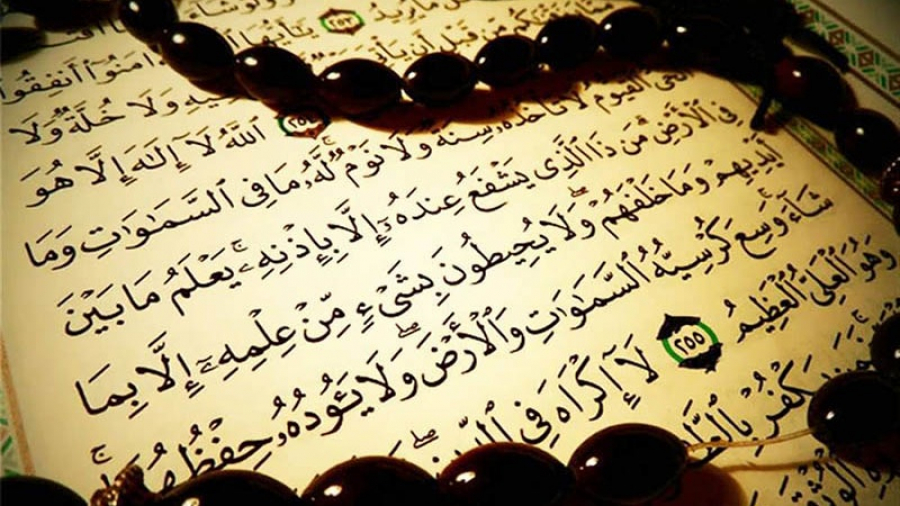 يُرِيدُ ٢٥٣ يَٰٓأَيُّهَا
ءَامَنُوٓا۟ أَنفِقُوا۟ مِن قَبْلِ أَن يَأْتِىَ
فِيهِ وَلَا خُلَّةٌ وَلَا
٢٥٤ ٱللَّهُ لَآ إِلَٰهَ إِلَّا هُوَ
ٱلْحَىُّ ٱلْقَيُّومُ لَا تَأْخُذُهُۥ سِنَةٌ وَلَا نَوْمٌ لَّهُۥ مَا فِى ٱلسَّمَٰوَٰتِ وَمَا
فِى ٱلْأَرْضِ مَن ذَا ٱلَّذِى يَشْفَعُ عِندَهُۥٓ إِلَّا بِإِذْنِهِۦ يَعْلَمُ مَا بَيْنَ
أَيْدِيهِمْ وَمَا خَلْفَهُمْ وَلَا يُحِيطُونَ بِشَىْءٍ مِّنْ عِلْمِهِۦٓ إِلَّا بِمَا
شَآءَ وَسِعَ كُرْسِيُّهُ ٱلسَّمَٰوَٰتِ وَٱلْأَرْضَ وَلَا يَـُٔودُهُۥ حِفْظُهُمَا
وَهُوَ ٱلْعَلِىُّ ٱلْعَظِيمُ ٢٥٥ لَآ إِكْرَاهَ فِى
يَكْفُرْ